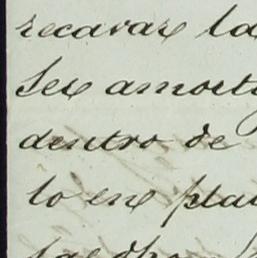 recavar la
ser amorti
dentro de
to en pla